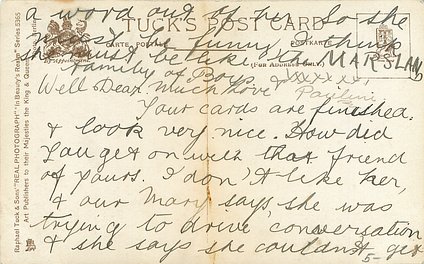 a word out of her. So she
must be funny, I think
she must be like. MARSLAN
Family of Boys.
Well Dear, much love & xxxxxx
Pauline
TUCK'S POST CARD
CARTE POSTALE
POSTKARTE
(FOR ADDRESS ONLY)
By Appointment
Your cards are finished.
& look very nice. How did
you get on with that friend
of yours. I don't like her,
& our Mary says she was
trying to drive conversation
& she says she couldn't get
5-
Raphael Tuck & Sons' "REAL PHOTOGRAPH" "In Beauty's Realm" Series 5365
Art Publishers to their Majesties the King & Queen